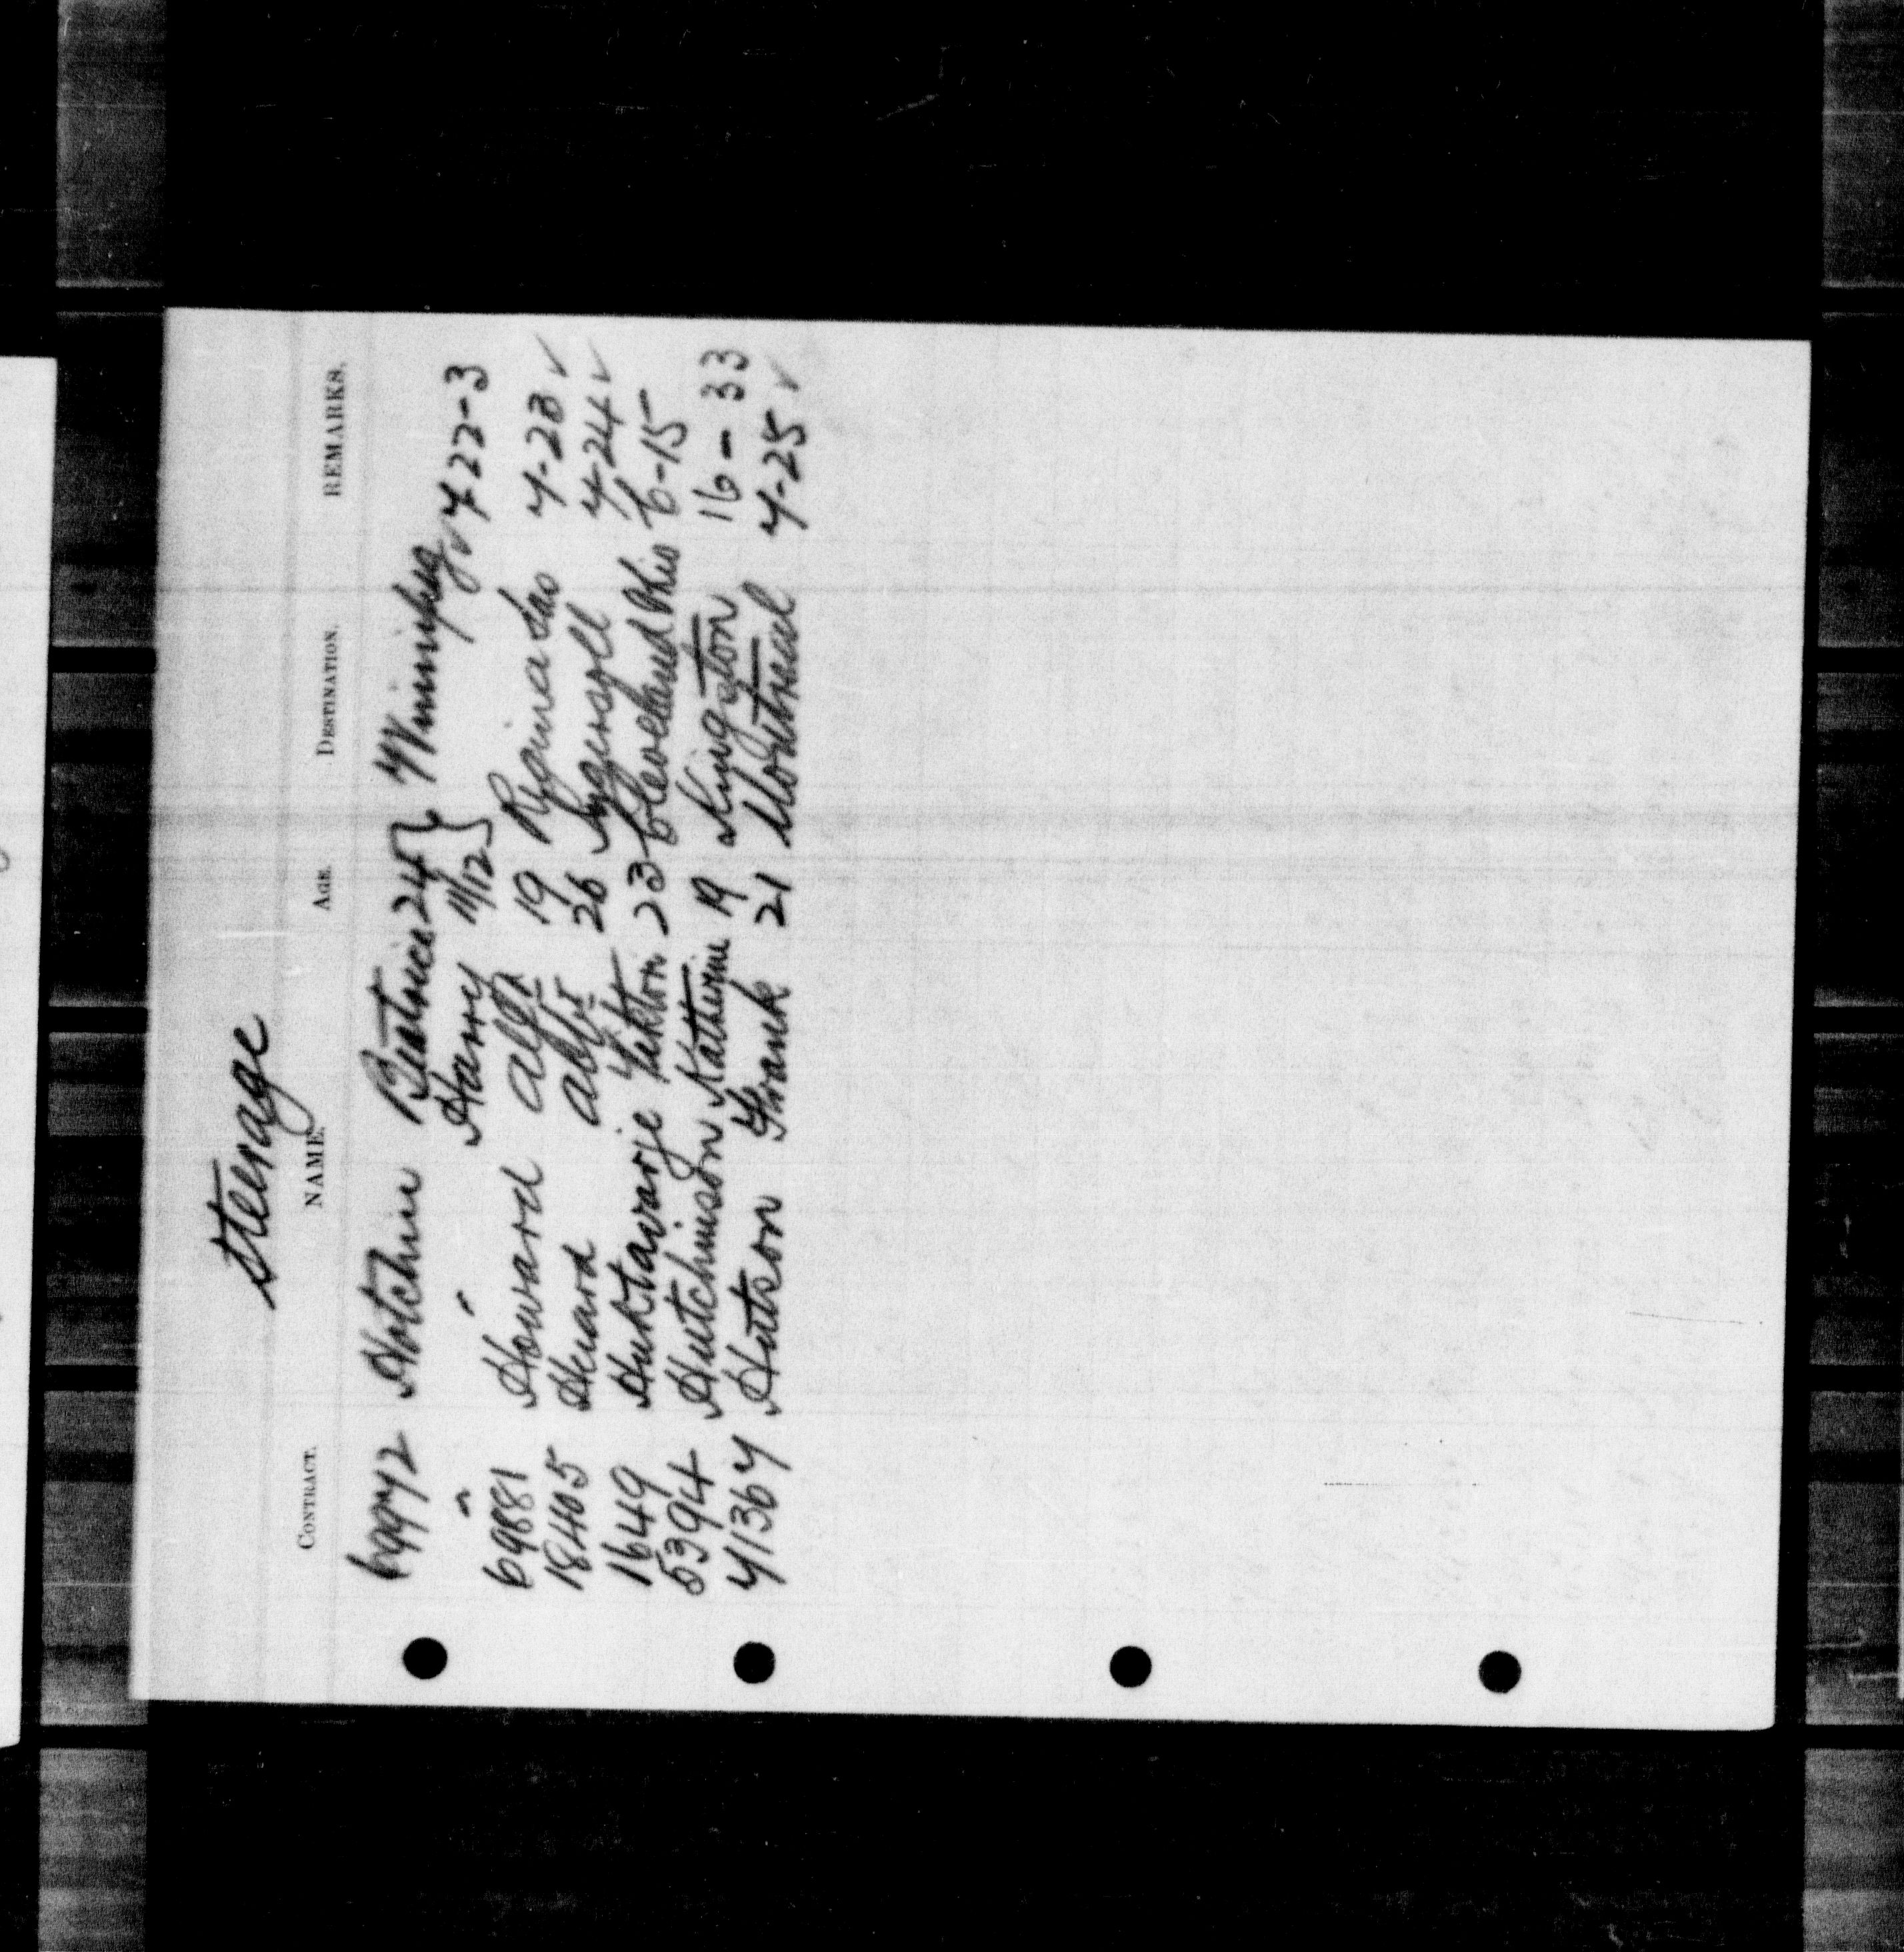 Steerage
CONTRACT. NAME. AGE. DESTINATION. REMARKS.
Hotchin Beatrice 24 } Winnipeg ✓ 4 22-3
" " Harry 11/12 }
69881 Howard Alfd 19 Regina Sas 4-23 ✓
18405 Heard Albt 26 Ingersoll 4-24 ✓
1649 23 Cleveland Ohio 6-15
53944 Hutchinson Katherine 19 Kingston 16-33
41364 Hutson Frank 21 Montreal 4-25 ✓